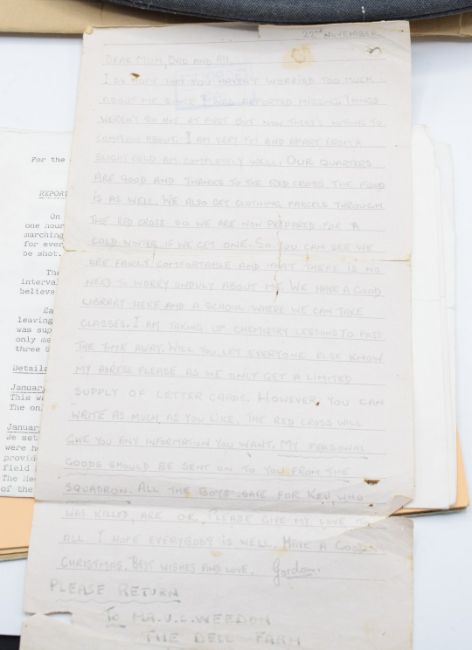 22nd NOVEMBER
DEAR MUM, DAD AND ALL,
I DO HOPE THAT YOU HAVEN'T WORRIED TOO MUCH
ABOUT ME SINCE I WAS REPORTED MISSING. THINGS
WEREN'T SO NICE AT FIRST BUT NOW THERE'S NOTHING TO
COMPLAIN ABOUT. I AM VERY FIT AND APART FROM A
SLIGHT COLD AM COMPLETELY WELL. OUR QUARTERS
ARE GOOD AND THANKS TO THE RED CROSS THE FOOD
IS AS WELL. WE ALSO GET CLOTHING PARCELS THROUGH
THE RED CROSS SO WE ARE NOW PREPARED FOR A
COLD WINTER IF WE GET ONE. SO YOU CAN SEE WE
ARE FAIRLY COMFORTABLE AND THAT THERE IS NO
NEED TO WORRY UNDULY ABOUT ME. WE HAVE A GOOD
LIBRARY HERE AND A SCHOOL WHERE WE CAN TAKE
CLASSES. I AM TAKING UP CHEMISTRY LESSONS TO PASS
THE TIME AWAY. WILL YOU LET EVERYONE ELSE KNOW
MY ADRESS PLEASE AS WE ONLY GET A LIMITED
SUPPLY OF LETTER CARDS. HOWEVER, YOU CAN
WRITE AS MUCH AS YOU LIKE. THE RED CROSS WILL
GIVE YOU ANY INFORMATION YOU WANT. MY PERSONAL
GOODS SHOULD BE SENT ON TO YOU FROM THE
SQUADRON. ALL THE BOYS SAVE FOR KEN WHO
WAS KILLED, ARE OK. PLEASE GIVE MY LOVE TO
ALL. I HOPE EVERYBODY IS WELL. HAVE A GOOD
CHRISTMAS. BEST WISHES AND LOVE. Gordon.
PLEASE RETURN
TO MR. V.C. WEEDON
THE DELL FARM
For the
REPORT
On
one hour
marching
for ever
be shot.
The
interval
believe
leaving
was sup
only me
three
Details
January
This w
The onl
January
We set
were h
provid
field
The Ge
of the